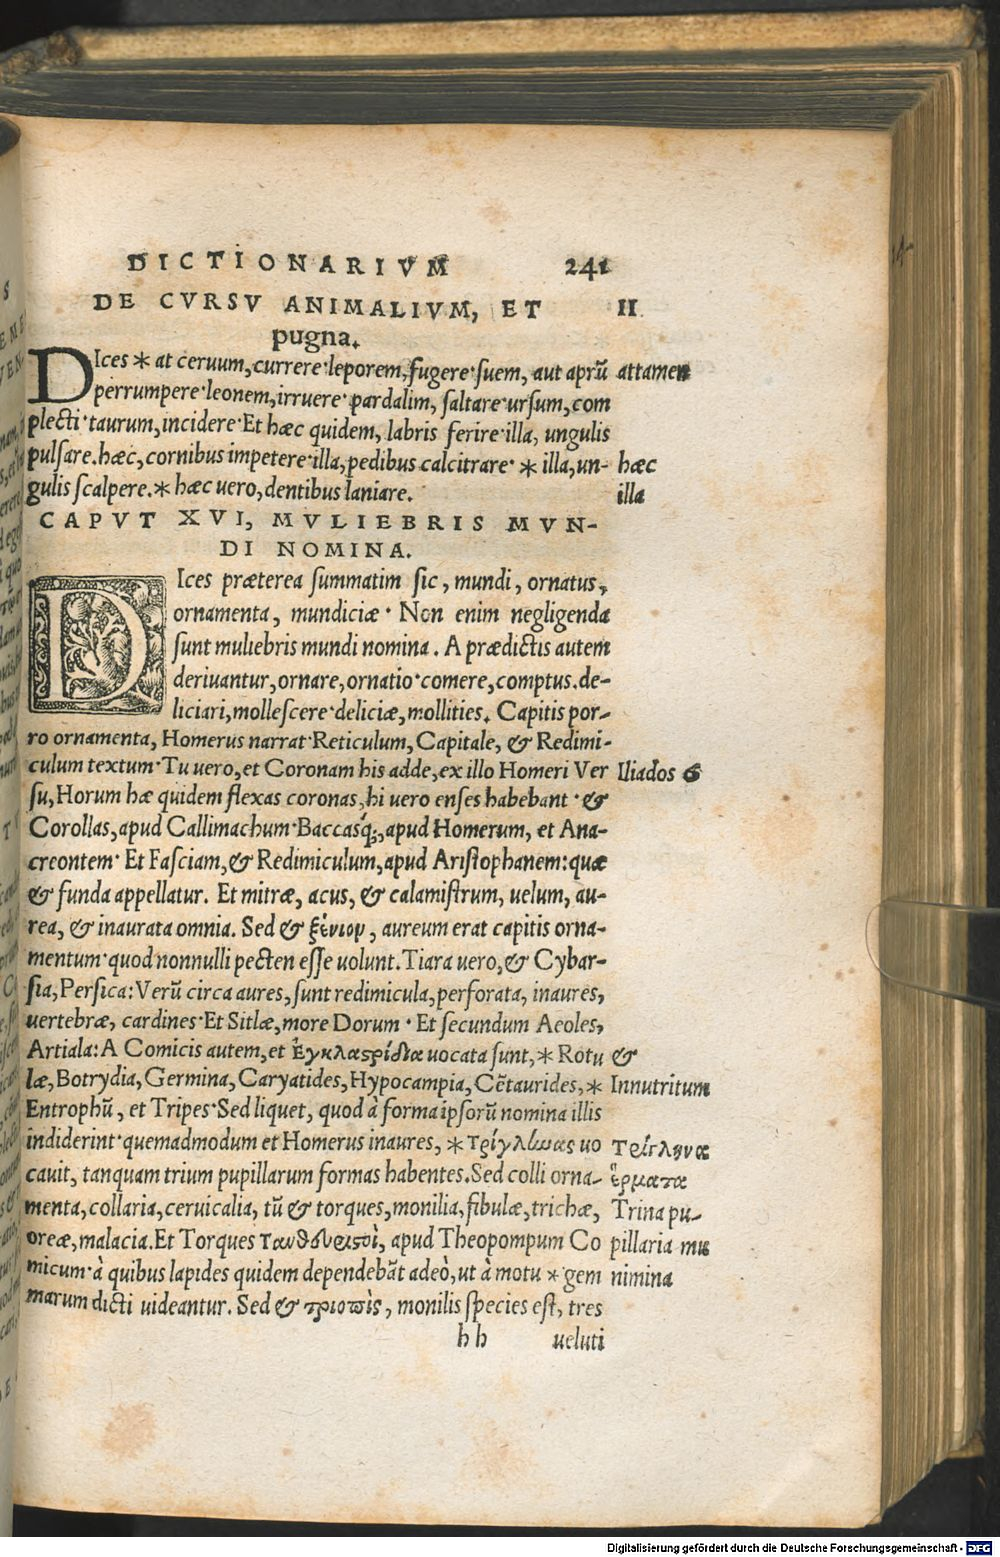 DICTIONARIVM 241
DE CVRSV ANIMALIVM, ET II
pugna.
DIces * at ceruum, currere·leporem, fugere·suem, aut aprũ attamen
perrumpere·leonem, irruere·pardalim, saltare·ursum, com
plecti·taurum, incidere·Et hæc quidem, labris ferire·illa, ungulis
pulsare.hæc, cornibus impetere·illa, pedibus calcitrare· * illa, un- hæc
gulis scalpere.* hæc uero, dentibus laniare. illa
CAPVT XVI, MVLIEBRIS MVN-
DI NOMINA.
DIces præterea summatim sic, mundi, ornatus,
ornamenta, mundiciæ· Non enim negligenda
sunt muliebris mundi nomina. A prædictis autem
deriuantur, ornare, ornatio·comere, comptus.de-
liciari, mollescere·deliciæ, mollities. Capitis por-
ro ornamenta, Homerus narrat·Reticulum, Capitale, & Redimi-
culum textum·Tu uero, et Coronam his adde, ex illo Homeri Ver Iliados 6
su, Horum hæ quidem flexas coronas, hi uero enses habebant·&
Corollas, apud Callimachum·Baccasq́;, apud Homerum, et Ana-
creontem· Et Fasciam, & Redimiculum, apud Aristophanem: quæ
& funda appellatur. Et mitræ, acus, & calamistrum, uelum, au-
rea, & inaurata omnia. Sed & ξένιον, aureum erat capitis orna-
mentum·quod nonnulli pecten esse uolunt.Tiara uero, & Cybar-
sia, Persica: Verũ circa aures, sunt redimicula, perforata, inaures,
uertebræ, cardines·Et Sitlæ, more Dorum· Et secundum Aeoles,
Artiala: A Comicis autem, et Ἐγκλαστρίδια uocata sunt, * Rotu &
læ, Botrydia, Germina, Caryatides, Hypocampia, Cẽtaurides, * Innutritum
Entrophũ, et Tripes·Sed liquet, quod à forma ipsorũ nomina illis
indiderint·quemadmodum et Homerus inaures, * τρίγλωας uo Τρίγληνα
cauit, tanquam trium pupillarum formas habentes.Sed colli orna- ἕρματα
menta, collaria, ceruicalia, tũ & torques, monilia, fibulæ, trichæ, Trina pu-
oreæ, malacia.Et Torques τανθδυριστοὶ, apud Theopompum Co pillaria mu
micum·à quibus lapides quidem dependebãt adeò, ut à motu * gem nimina
marum dicti uideantur. Sed & τριοπὶς, monilis species est, tres
hh ueluti
Digitalisierung gefördert durch die Deutsche Forschungsgemeinschaft - DFG